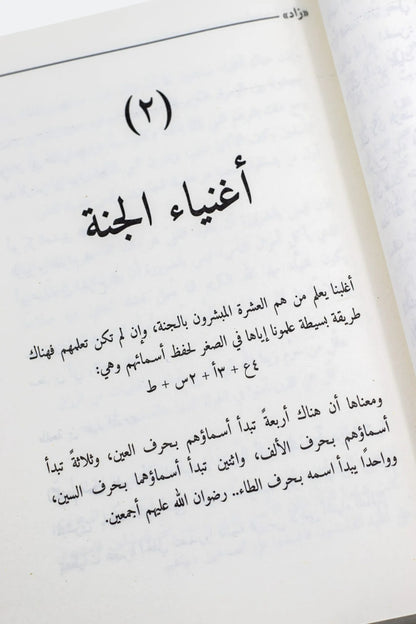 «زاد»
(٢)
أغنياء الجنة
أغلبنا يعلم من هم العشرة المبشرون بالجنة، وإن لم تكن تعلمهم فهناك
طريقة بسيطة علمونا إياها في الصغر لحفظ أسمائهم وهي:
٤ع + ٣أ + ٢س + ط
ومعناها أن هناك أربعةً تبدأ أسماؤهم بحرف العين، وثلاثةً تبدأ
أسماؤهم بحرف الألف، واثنين تبدأ أسماؤهما بحرف السين،
وواحدًا يبدأ اسمه بحرف الطاء.. رضوان الله عليهم أجمعين.